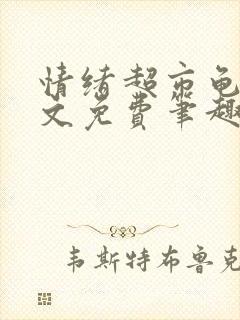 情绪超市龟
文免费笔趣
韦斯特布鲁克